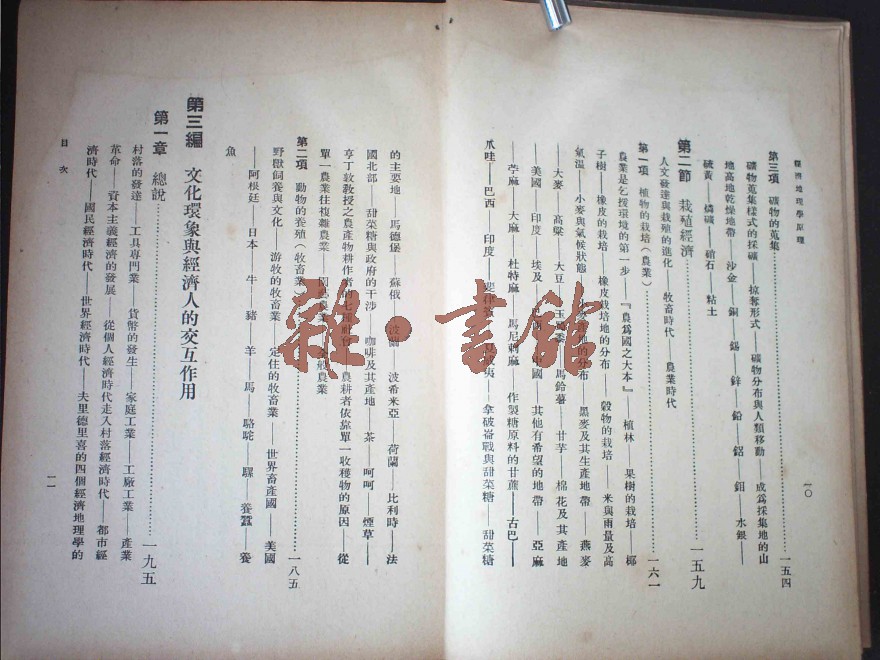 經濟地理學原理
一〇
第三項 礦物的蒐集……一五四
礦物蒐集樣式的採礦——掠奪形式——礦物分布與人類移動——成爲採集地的山
地高地乾燥地帶——沙金——銅——錫——鋅——鉛——鋁——鉬——水銀——
硫黃——燐礦——硝石——粘土
第二節 栽殖經濟……一五九
人文發達與栽殖的進化——牧畜時代——農業時代
第一項 植物的栽培(農業)……一六一
農業是乞援環境的第一步——『農爲國之大本』——植林——果樹的栽培——椰
子樹——橡皮的栽培——橡皮栽培地的分布——穀物的栽培——米與雨量及高
氣溫——小麥與氣候狀態——小麥產地的分布——黑麥及其生產地帶——燕麥
——大麥——高粱——大豆——玉蜀黍——馬鈴薯——甘芋——棉花及其產地
——美國——印度——埃及——中國——其他有希望的地帶——亞麻
——苧麻——大麻——杜特麻——馬尼剌麻——作製糖原料的甘蔗——古巴——
爪哇——巴西——印度——菲律賓——夏威夷——拿破崙戰與甜菜糖——甜菜糖
的主要地——馬德堡——蘇俄——波蘭——波希米亞——荷蘭——比利時——法
國北部——甜菜糖與政府的干涉——咖啡及其產地——茶——呵呵——煙草——
亨丁敦教授之農產物耕作者的七種社會——農耕者依靠單一收穫物的原因——從
單一農業往複雜農業——園藝農業——農業
第二項 動物的養殖(牧畜業)……一八五
野獸飼養與文化——游牧的牧畜業——定住的牧畜業——世界畜產國——美國
——阿根廷——日本——牛——豬——羊——馬——駱駝——騾——養蠶——養
魚
第三編 文化環象與經濟人的交互作用
第一章 總說……一九五
村落的發達——工具專門業——貨幣的發生——家庭工業——工廠工業——產業
革命——資本主義經濟的發展——從個人經濟時代走入村落經濟時代——都市經
濟時代——國民經濟時代——世界經濟時代——夫里德里喜的四個經濟地理學的
目次
一一
雜·書館